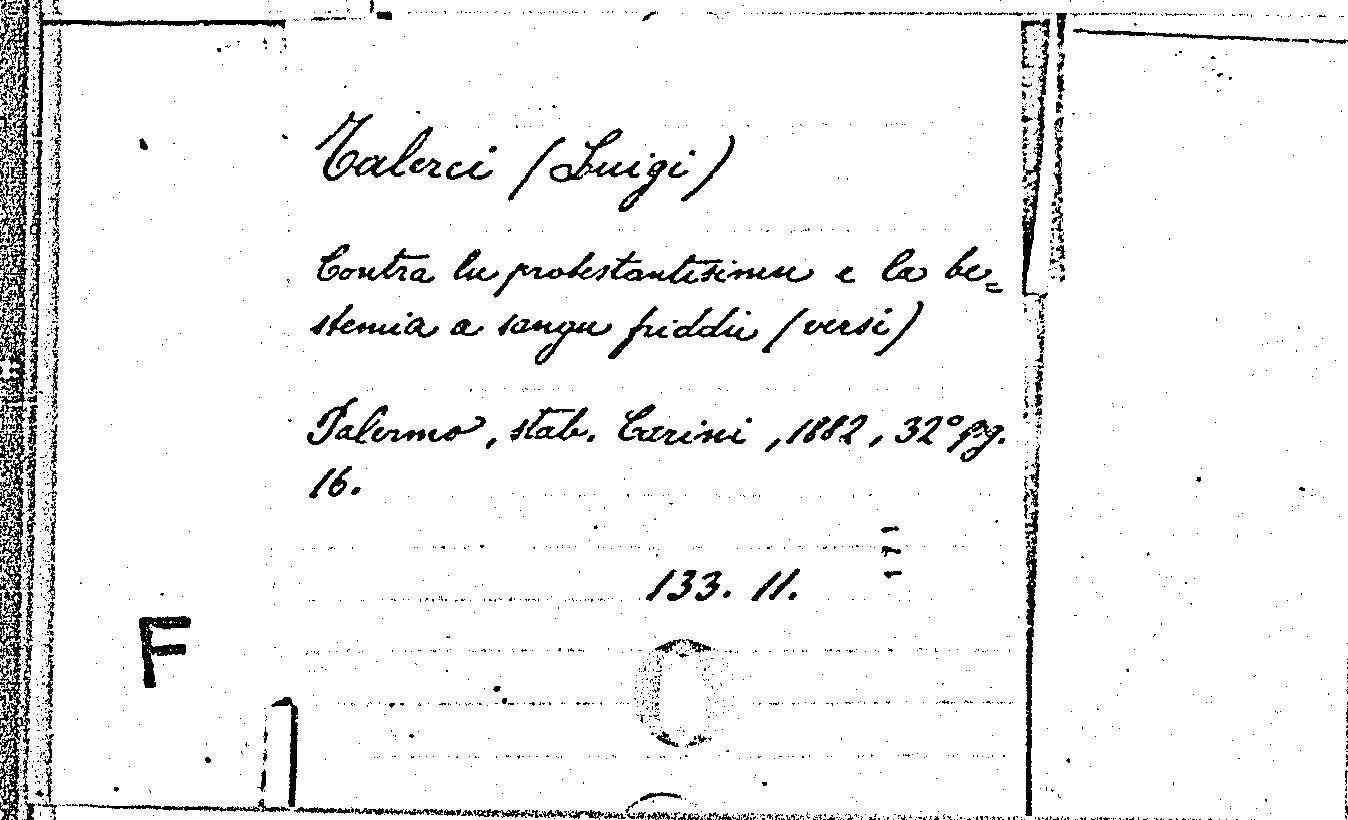 Talerci (Luigi)
Contra lu protestantisimu e la be=
stemia a sangu friddu (versi)
Palermo, stab. Carini, 1882, 32° pg.
16.
171
133. 11.
F